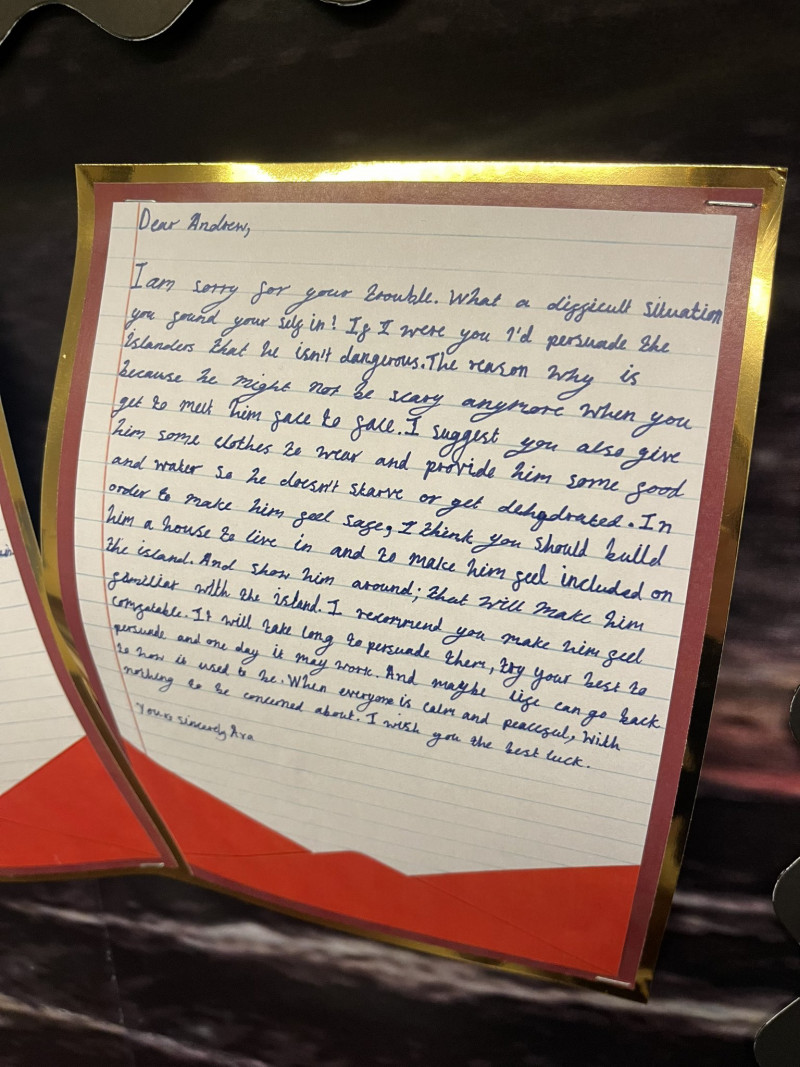 Dear Andrew,
I am sorry for your trouble. What a difficult situation
you found your self in! If I were you I'd persuade the
islanders that he isn't dangerous. The reason why is
because he might not be scary anymore when you
get to meet him face to face. I suggest you also give
him some clothes to wear and provide him some good
and water so he doesn't starve or get dehydrated. In
order to make him feel safe, I think you should build
him a house to live in and to make him feel included on
the island. And show him around; that will make him
familiar with the island. I recommend you make him feel
comfatable. It will take long to persuade them, try your best to
persuade and one day it may work. And maybe life can go back
to how it used to be. When everyone is calm and peaceful, with
nothing to be concerned about. I wish you the best luck.
Yours sincerely Ava